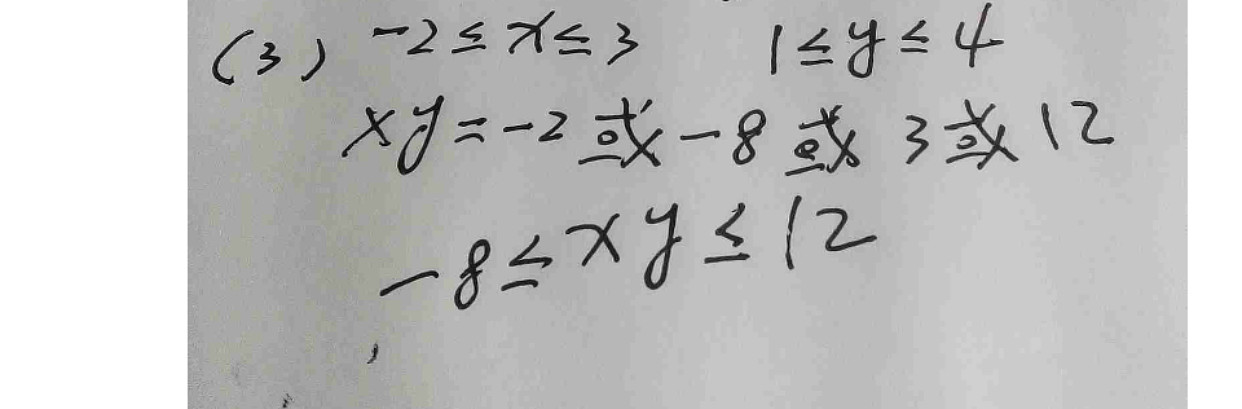 (3) -2≤x≤3 1≤y≤4
xy=-2或-8或3或12
-8≤xy≤12